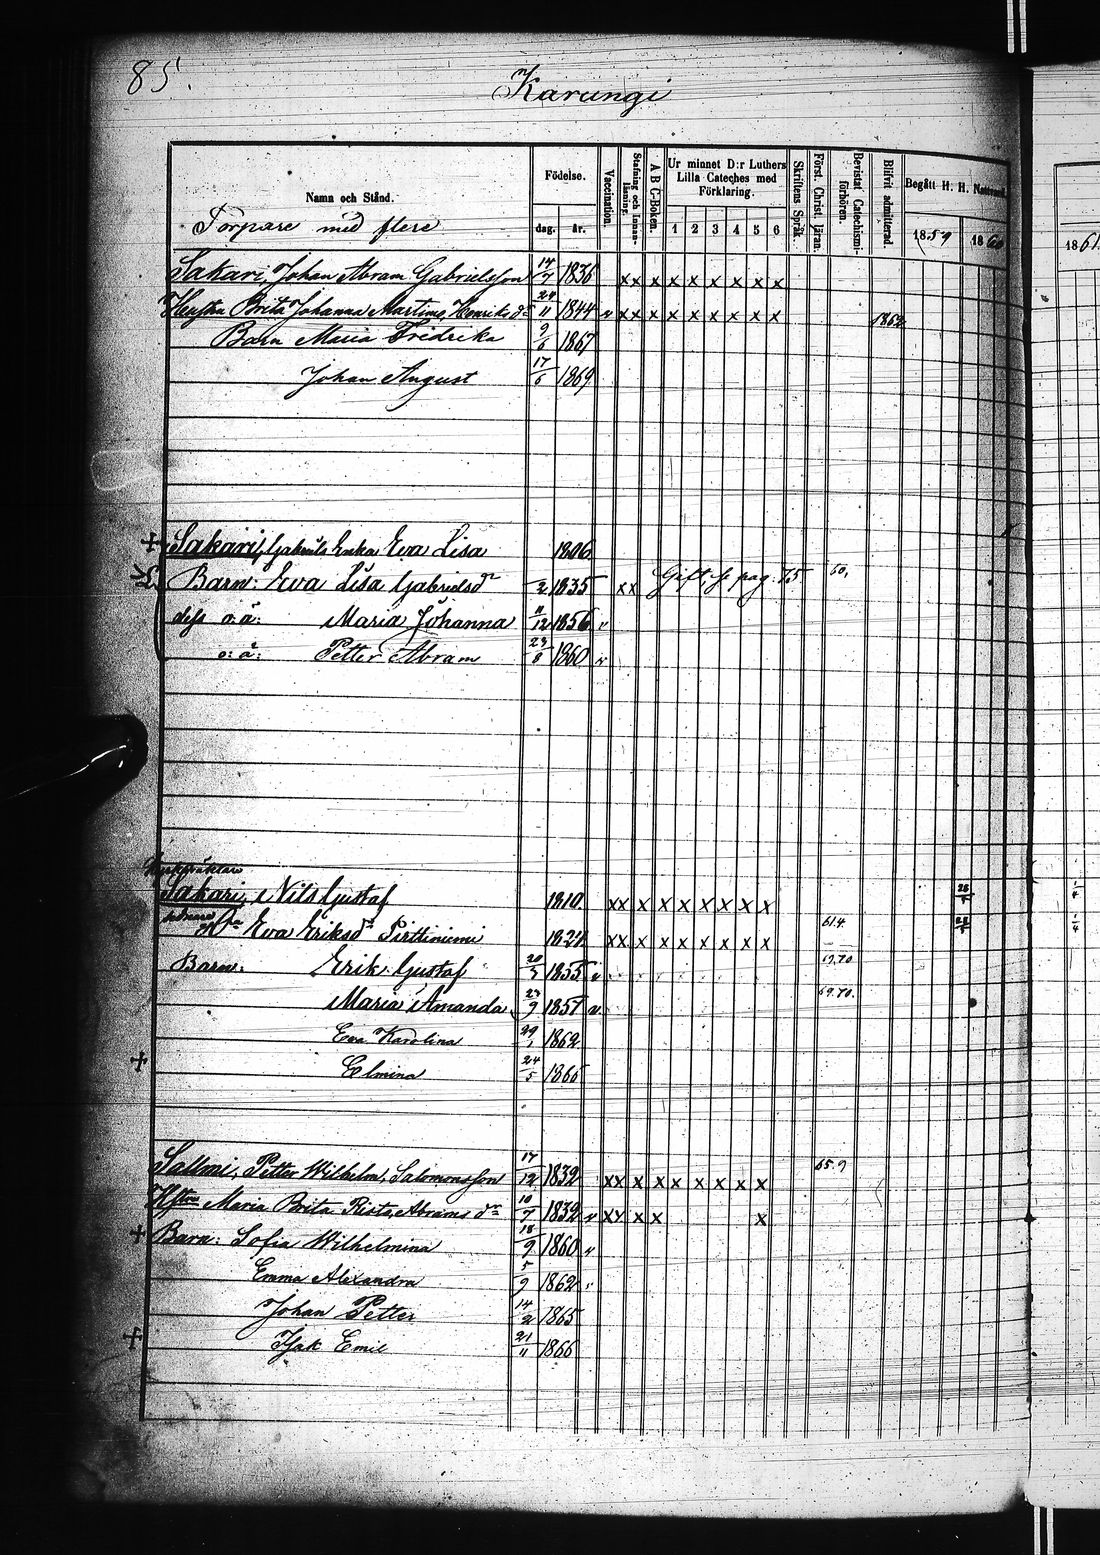 85.
Karungi
Namn och Stånd.
Torpare med flere
Födelse.
dag. år.
Vaccination.
Stafning och Innan-läsning.
A B C-Boken.
Ur minnet D:r Luthers Lilla Cateches med Förklaring.
1 2 3 4 5 6
Skriftens Språk.
Först. Christ. läran.
Bevistat Catechismi-förhören.
Blifvit admitterad.
Begått H. H. Nattvard
1859 1860 1861
Sakari, Johan Abram Gabrielsson 14/7 1836 x x x x x x x x x
Hustru Brita Johanna Martinus Henriks dr 24/11 1844 v x x x x x x x x x 1862
Barn Maria Fredrika 9/6 1867
Johan August 17/6 1869
+ Sakari, Gabriels Enka Eva Lisa 1806
Barn: Eva Lisa Gabrielsdr 2 1835 x x Gift, se pag. 75 60,
dess o.ä: Maria Johanna 11/12 1856 v
o:ä: Petter Abram 23/8 1860 v
Sakari, Nils Gustaf 1810 x x x x x x x x x 28
Eva Eriksdr Pirttiniemi 1824 x x x x x x x x x 61.4. 1/4
Barn: Erik Gustaf 20/3 1855 v 19.70
Maria Amanda 23/9 1857 v. 69.70.
Eva Karolina 29/1 1862
+ Elmina 24/5 1865
Sallmi, Petter Wilhelm, Salomonsson 17/12 1832 x x x x x x x x x 65.9
Hstru Maria Brita Risto, Abrams dr 10/7 1832 v x x x x x
+ Barn: Sofia Wilhelmina 18/9 1860 v
Emma Alexandra 5/9 1862 v
Johan Petter 14/2 1865
+ Isak Emil 21/11 1866